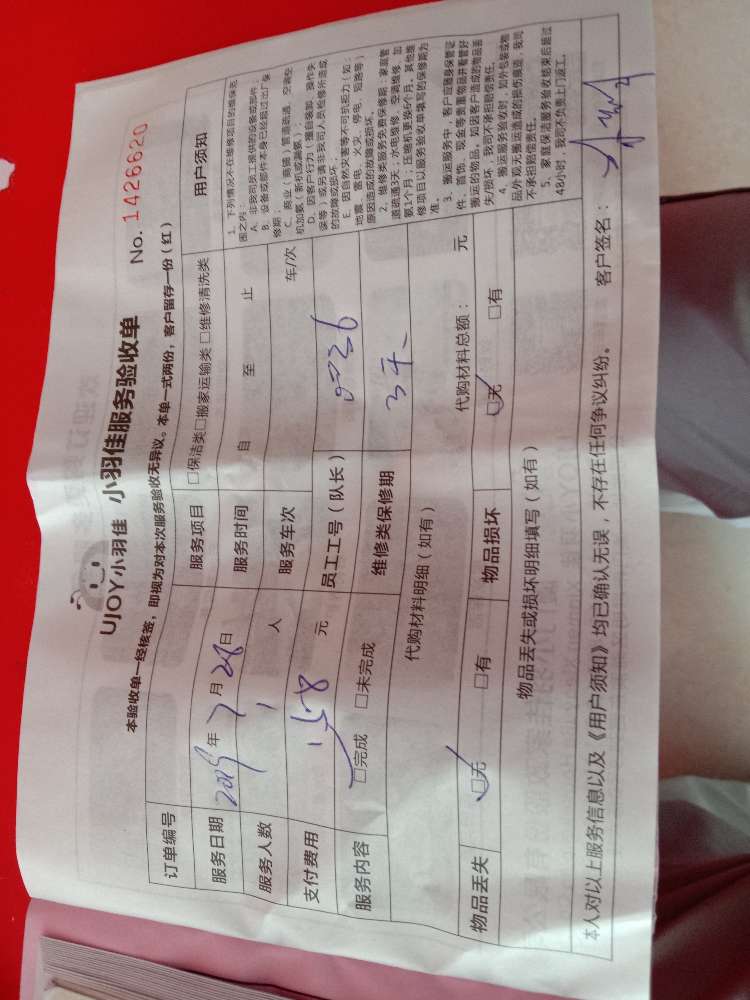 UJOY小羽佳 小羽佳服务验收单
No. 1426620
本验收单一经核签，即视为对本次服务验收无异议。本单一式两份，客户留存一份（红）
订单编号
服务项目 □保洁类□搬家运输类 □维修清洗类
服务日期 2019年7月28日
服务时间 自 至 止
服务人数 1 人
服务车次 车/次
支付费用 158 元
员工工号（队长） 0036
服务内容 □完成 □未完成
维修类保修期 3天
代购材料明细（如有）
代购材料总额： 元
物品丢失 □无 □有
物品损坏 □无 □有
物品丢失或损坏明细填写（如有）
用户须知
1、下列情况不在维修项目的维保范
围之内：
A、非我司员工提供的设备或部件；
B、设备或部件本身已经超过出厂保
修期；
C、商业（商铺）管道疏通、空调空
机加氨（新机或漏氨）；
D、因客户行为（擅自装卸、操作失
误等）或另请非我司人员检修所造成
的故障或损坏；
E、因自然灾害等不可抗力（如：
地震、雷电、火灾、停电、短路等）
原因造成的故障或损坏。
2、维修类服务免费保修期：家庭管
道疏通3天；水电维修、空调维修、加
氨1个月；压缩机更换6个月。其他维
修项目以服务验收单填写的保修期为
准。
3、搬运服务中，客户应随身保管证
件、首饰、现金等贵重物品并看管好
搬运的物品，如因客户造成的物品丢
失/损坏，我司不承担赔偿责任。
4、搬运服务验收时，如外包装或物
品外观无搬运造成的损伤痕迹，我司
不承担赔偿责任。
5、家庭保洁服务验收结束后超过
48小时，我司不负责上门返工。
本人对以上服务信息以及《用户须知》均已确认无误，不存在任何争议纠纷。 客户签名：